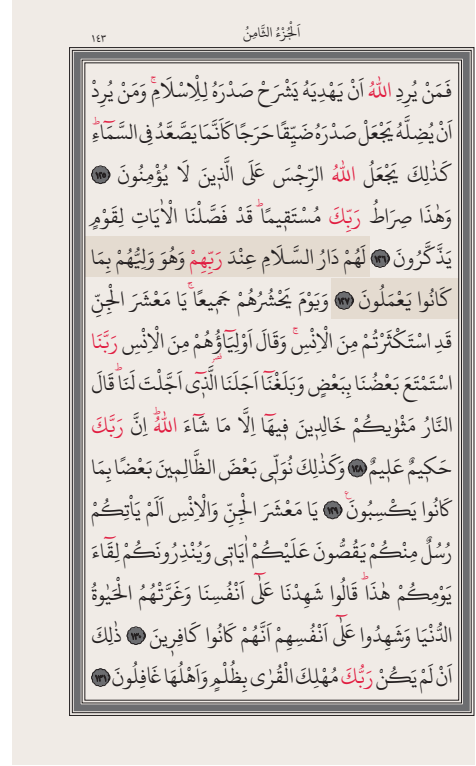 اَلْجُزْءُ الثَّامِنُ
١٤٣
فَمَنْ يُرِدِ اللّٰهُ اَنْ يَهْدِيَهُ يَشْرَحْ صَدْرَهُ لِلْاِسْلَامِۚ وَمَنْ يُرِدْ
اَنْ يُضِلَّهُ يَجْعَلْ صَدْرَهُ ضَيِّقًا حَرَجًا كَاَنَّمَا يَصَّعَّدُ فِى السَّمَٓاءِۜ
كَذٰلِكَ يَجْعَلُ اللّٰهُ الرِّجْسَ عَلَى الَّذ۪ينَ لَا يُؤْمِنُونَ ١٢٥
وَهٰذَا صِرَاطُ رَبِّكَ مُسْتَق۪يمًاۜ قَدْ فَصَّلْنَا الْاٰيَاتِ لِقَوْمٍ
يَذَّكَّرُونَ ١٢٦ لَهُمْ دَارُ السَّلَامِ عِنْدَ رَبِّهِمْ وَهُوَ وَلِيُّهُمْ بِمَا
كَانُوا يَعْمَلُونَ ١٢٧ وَيَوْمَ يَحْشُرُهُمْ جَم۪يعًاۚ يَا مَعْشَرَ الْجِنِّ
قَدِ اسْتَكْثَرْتُمْ مِنَ الْاِنْسِۚ وَقَالَ اَوْلِيَٓاؤُ۬هُمْ مِنَ الْاِنْسِ رَبَّنَا
اسْتَمْتَعَ بَعْضُنَا بِبَعْضٍ وَبَلَغْنَٓا اَجَلَنَا الَّذ۪ٓى اَجَّلْتَ لَنَاۜ قَالَ
النَّارُ مَثْوٰيكُمْ خَالِد۪ينَ ف۪يهَٓا اِلَّا مَا شَٓاءَ اللّٰهُۜ اِنَّ رَبَّكَ
حَك۪يمٌ عَل۪يمٌ ١٢٨ وَكَذٰلِكَ نُوَلّ۪ى بَعْضَ الظَّالِم۪ينَ بَعْضًا بِمَا
كَانُوا يَكْسِبُونَ۟ ١٢٩ يَا مَعْشَرَ الْجِنِّ وَالْاِنْسِ اَلَمْ يَاْتِكُمْ
رُسُلٌ مِنْكُمْ يَقُصُّونَ عَلَيْكُمْ اٰيَات۪ى وَيُنْذِرُونَكُمْ لِقَٓاءَ
يَوْمِكُمْ هٰذَاۜ قَالُوا شَهِدْنَا عَلٰٓى اَنْفُسِنَا وَغَرَّتْهُمُ الْحَيٰوةُ
الدُّنْيَا وَشَهِدُوا عَلٰٓى اَنْفُسِهِمْ اَنَّهُمْ كَانُوا كَافِر۪ينَ ١٣٠ ذٰلِكَ
اَنْ لَمْ يَكُنْ رَبُّكَ مُهْلِكَ الْقُرٰى بِظُلْمٍ وَاَهْلُهَا غَافِلُونَ ١٣١